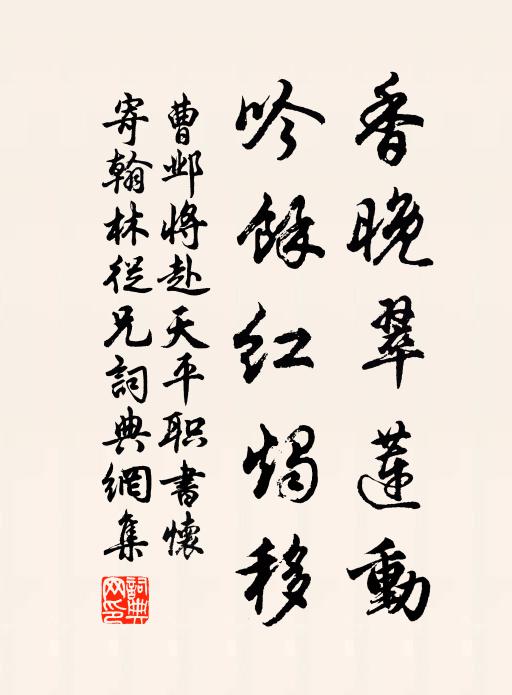 香晚翠蓮動
吟餘紅燭移
曹邺将赴天平职書懷
寄翰林從兄詞典網集
詞典网印